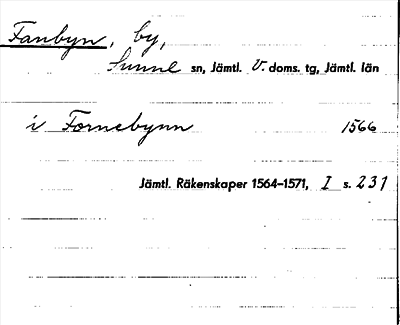 Fanbyn, by,
Sunne sn, Jämtl. V. doms. tg, Jämtl. län
i Fornebynn 1566
Jämtl. Räkenskaper 1564–1571, I s. 231